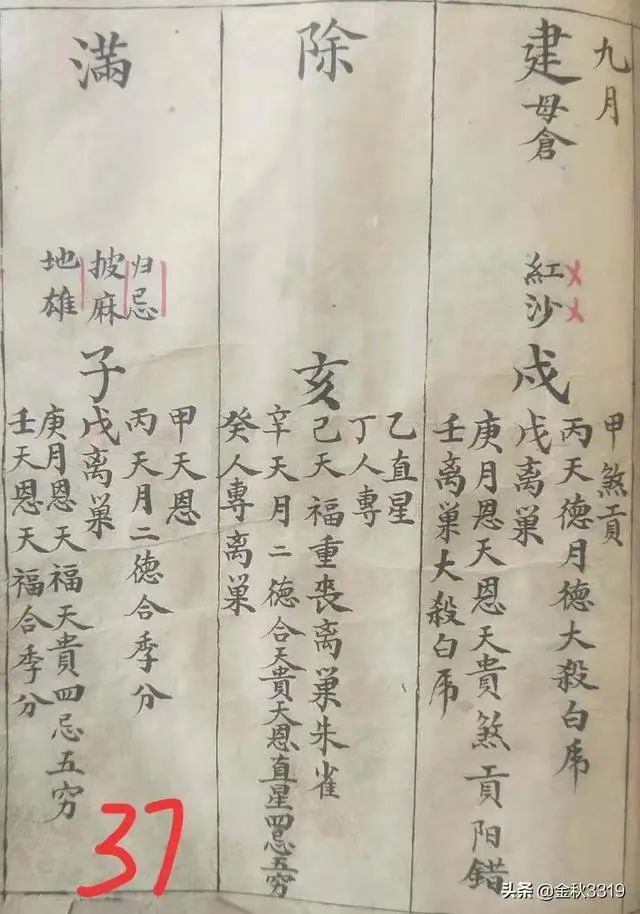 九月
建
母倉
紅沙
戍
甲煞貢
丙天德月德大殺白虎
戊离巢
庚月恩天恩天貴煞貢阳錯
壬離巢大殺白虎
除
亥
乙直星
丁人專
己天福重丧离巢朱雀
辛天月二德合天貴天恩直星四忌五穷
癸人專离巢
滿
归忌
披麻
地雄
子
甲天恩
丙天月二德合季分
戊离巢
庚月恩天福天貴四忌五穷
壬天恩天福合季分
37
头条 @金秋3319